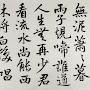 無泥蕭蕭暮
雨子規啼誰道
人生無再少君
看流水尚能西
休將白髮唱